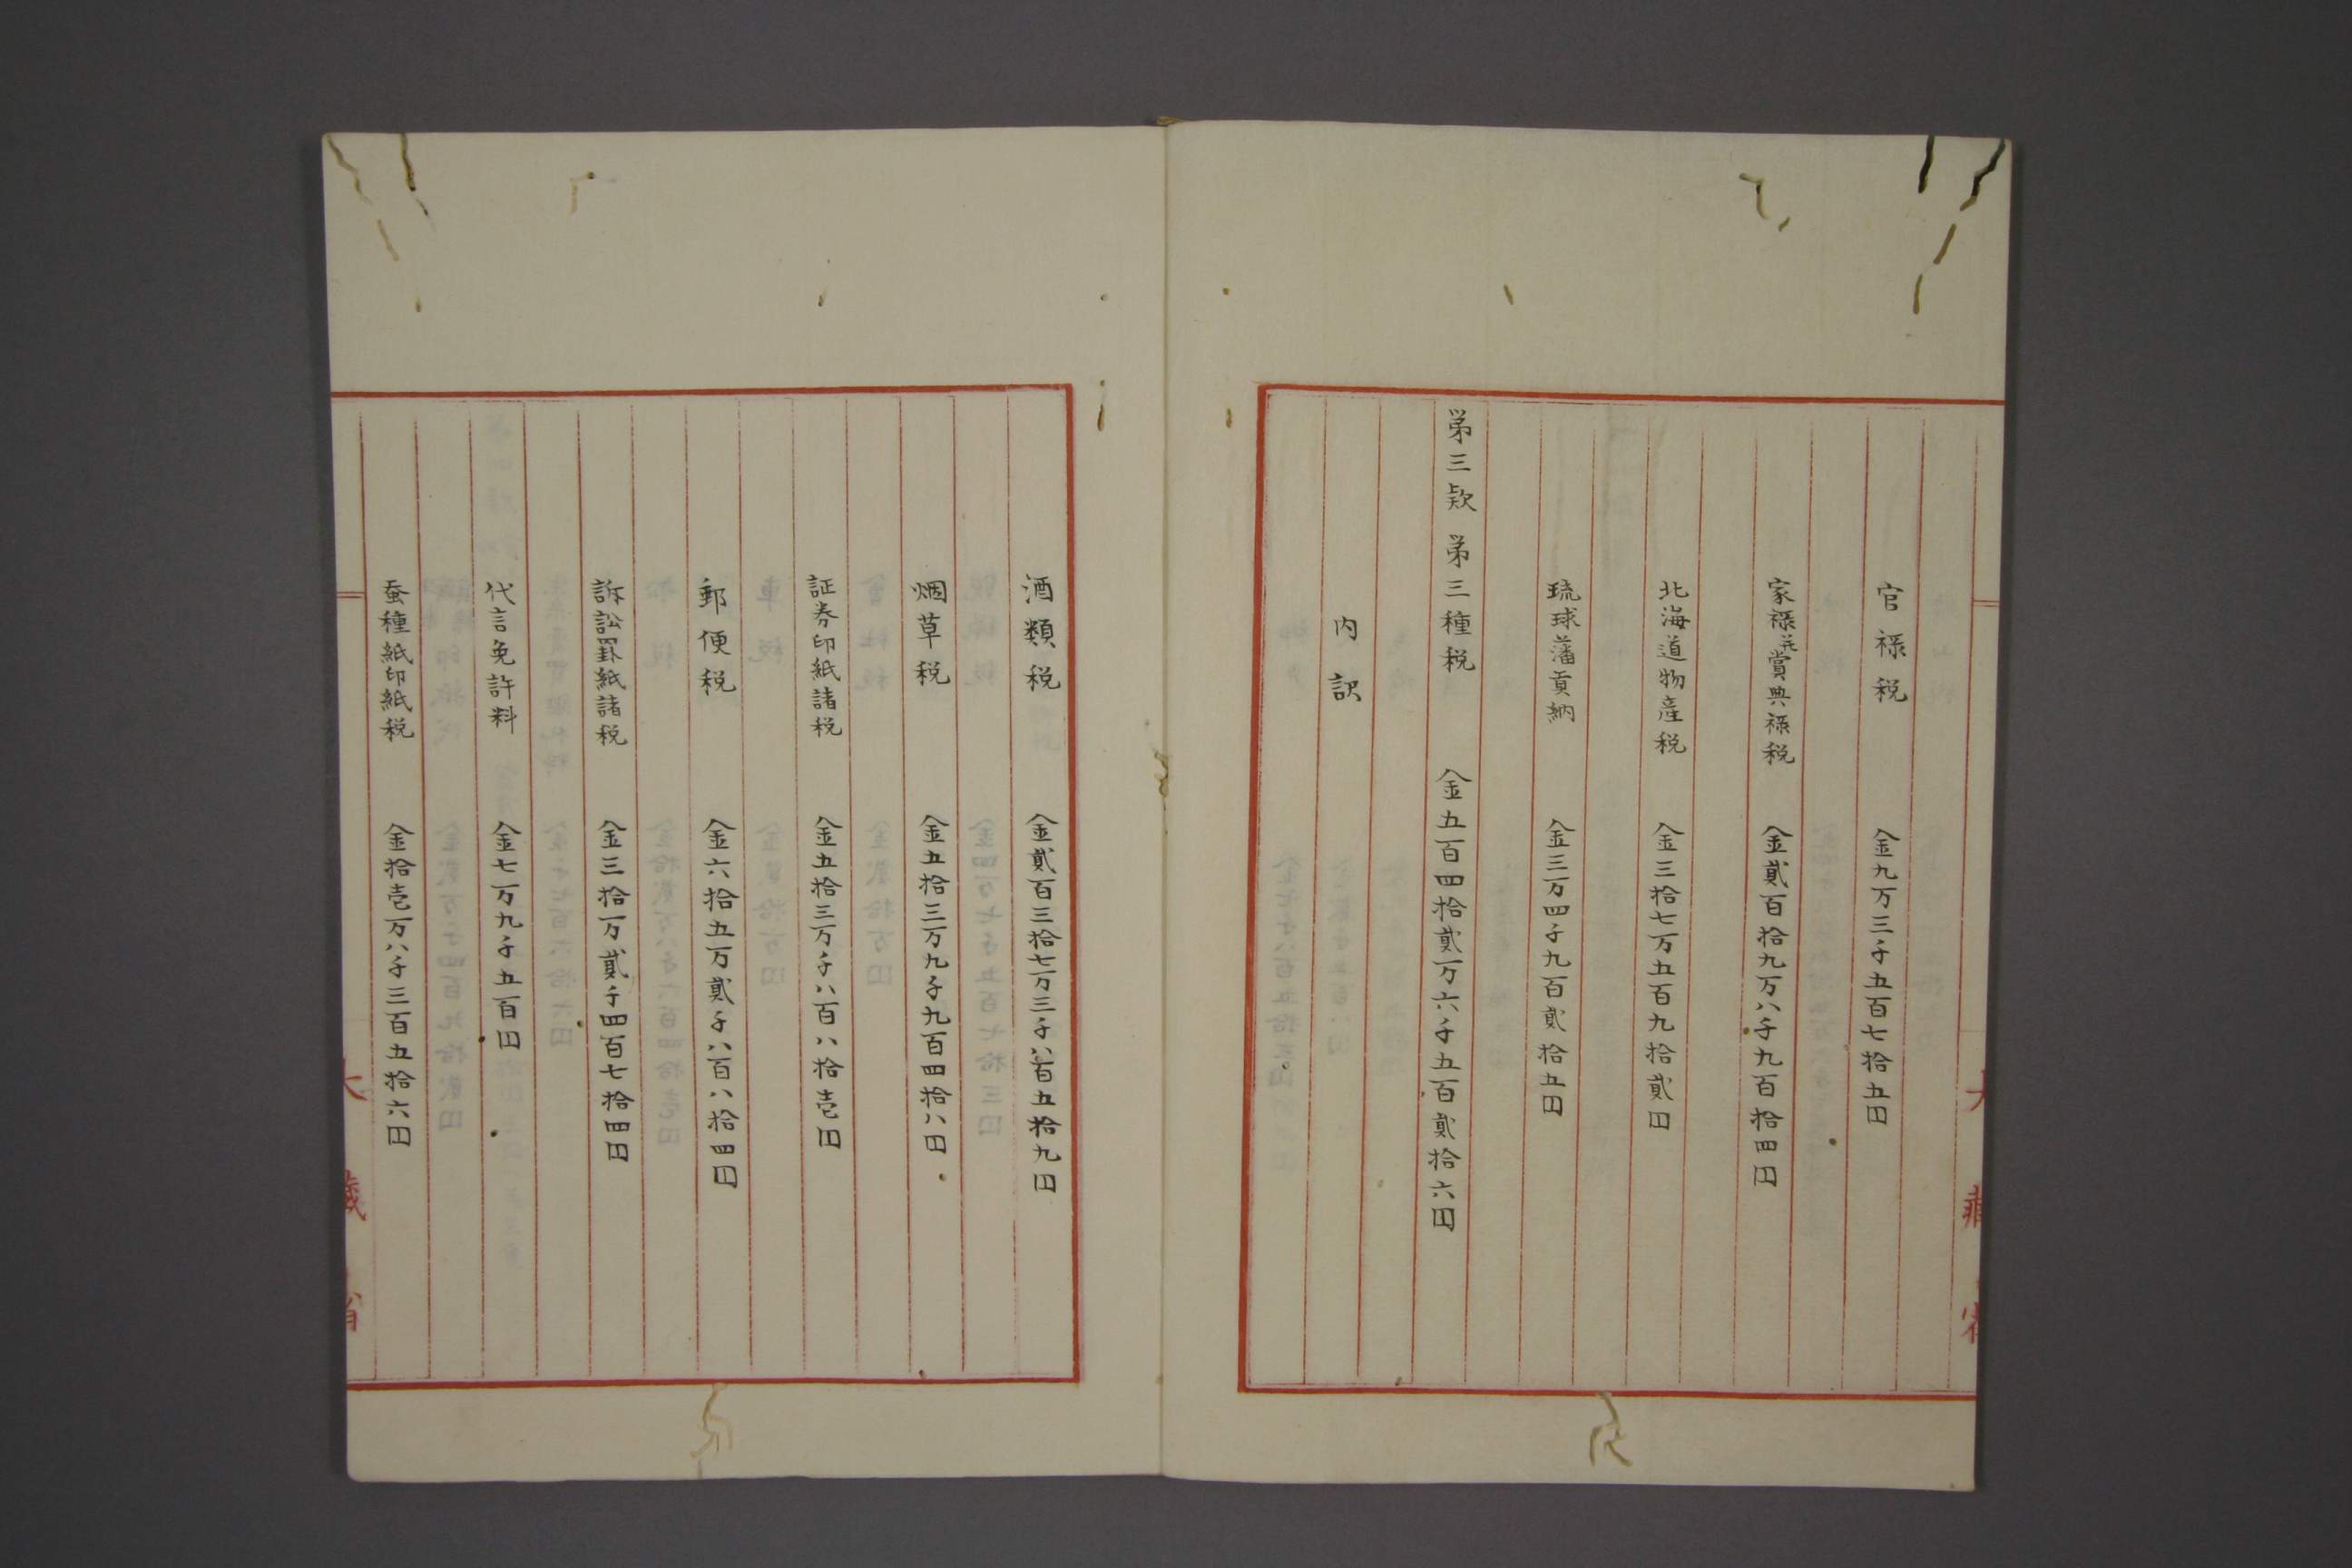 官禄税 金九万三千五百七拾五円
家禄并賞典禄税 金貳百拾九万八千九百拾四円
北海道物産税 金三拾七万五百九拾貳円
琉球藩貢納 金三万四千九百貳拾五円
第三款 第三種税 金五百四拾貳万六千五百貳拾六円
内訳
酒類税 金貳百三拾七万三千八百五拾九円
烟草税 金五拾三万九千九百四拾八円
証券印紙諸税 金五拾三万千八百八拾壱円
郵便税 金六拾五万貳千八百八拾四円
訴訟罫紙諸税 金三拾万貳千四百七拾四円
代言免許料 金七万九千五百円
蚕種紙印紙税 金拾壱万八千三百五拾六円